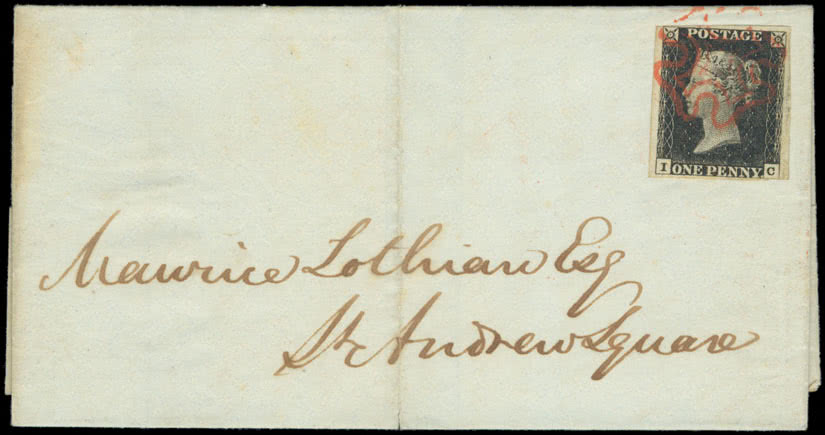 POSTAGE
I ONE PENNY C
Maurice Lothian Esq
St Andrew Square